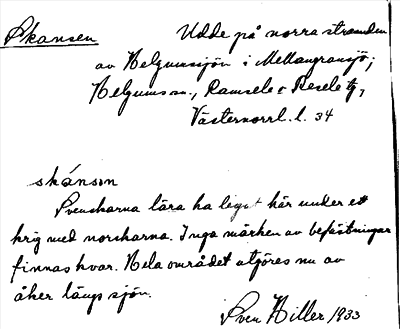 Skansen
Udde på norra stranden
av Helgumsjön i Mellangransjö,
Helgums sn., Ramsele o Resele tg,
Västernorrl. l. 34
skánsɷn
Svenskarna lära ha legat här under ett
krig med norskarna. Inga märken av befästningar
finnas kvar. Hela området utgöres nu av
åker längs sjön.
Sven Hiller 1933